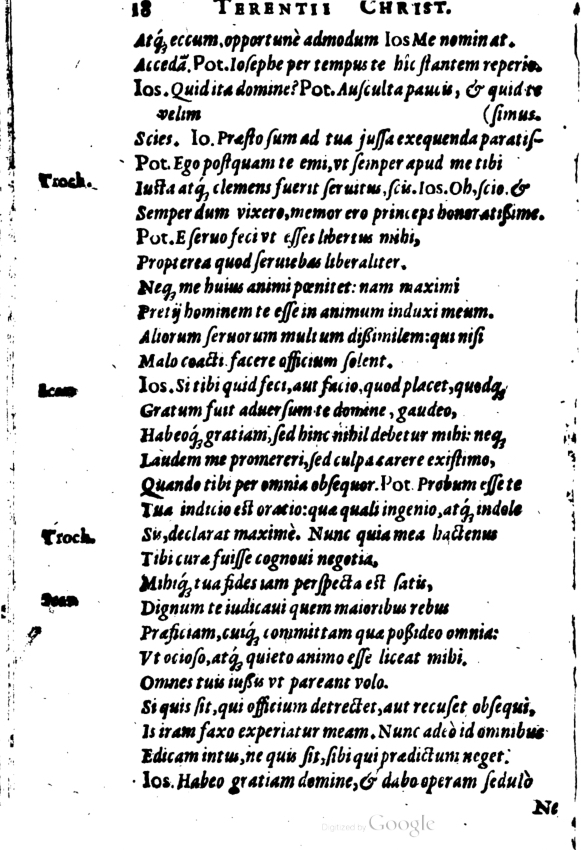 18 TERENTII CHRIST.
Atq́; eccum, opportunè admodum Ios Me nominat.
Accedã. Pot. Iosephe per tempus te hîc stantem reperio.
Ios. Quid ita domine? Pot. Ausculta paucis, & quid te
velim (simus.
Scies. Io. Præsto sum ad tua jussa exequenda paratis-
Pot. Ego postquam te emi, vt semper apud me tibi
Troch. Iusta atq́; clemens fuerit seruitus, scis. Ios. Oh, scio. &
Semper dum vixero, memor ero princeps honoratißime.
Pot. E seruo feci vt esses libertus mihi,
Propterea quod seruiebas liberaliter.
Neq; me huius animi pœnitet: nam maximi
Pretij hominem te esse in animum induxi meum.
Aliorum seruorum multum dißimilem: qui nisi
Malo coacti facere officium solent.
Scen Ios. Si tibi quid feci, aut facio, quod placet, quodq́;
Gratum fuit aduersum te domine, gaudeo,
Habeoq́; gratiam, sed hinc nihil debetur mihi: neq;
Laudem me promereri, sed culpa carere existimo,
Quando tibi per omnia obsequor. Pot. Probum esse te
Tua indicio est oratio: quæ quali ingenio, atq́; indole
Troch. Sis, declarat maximè. Nunc quia mea hactenus
Tibi curæ fuisse cognoui negotia,
Mihiq́; tua fides iam perspecta est satis,
Scen Dignum te iudicaui quem maioribus rebus
Præficiam, cuiq́; committam quæ poßideo omnia:
Vt ocioso, atq́; quieto animo esse liceat mihi.
Omnes tuis iußis vt pareant volo.
Si quis sit, qui officium detrectet, aut recuset obsequi,
Is iram faxo experiatur meam. Nunc adeò id omnibus
Edicam intus, ne quis sit, sibi qui prædictum neget.
Ios. Habeo gratiam domine, & dabo operam sedulò
Ne
Digitized by Google